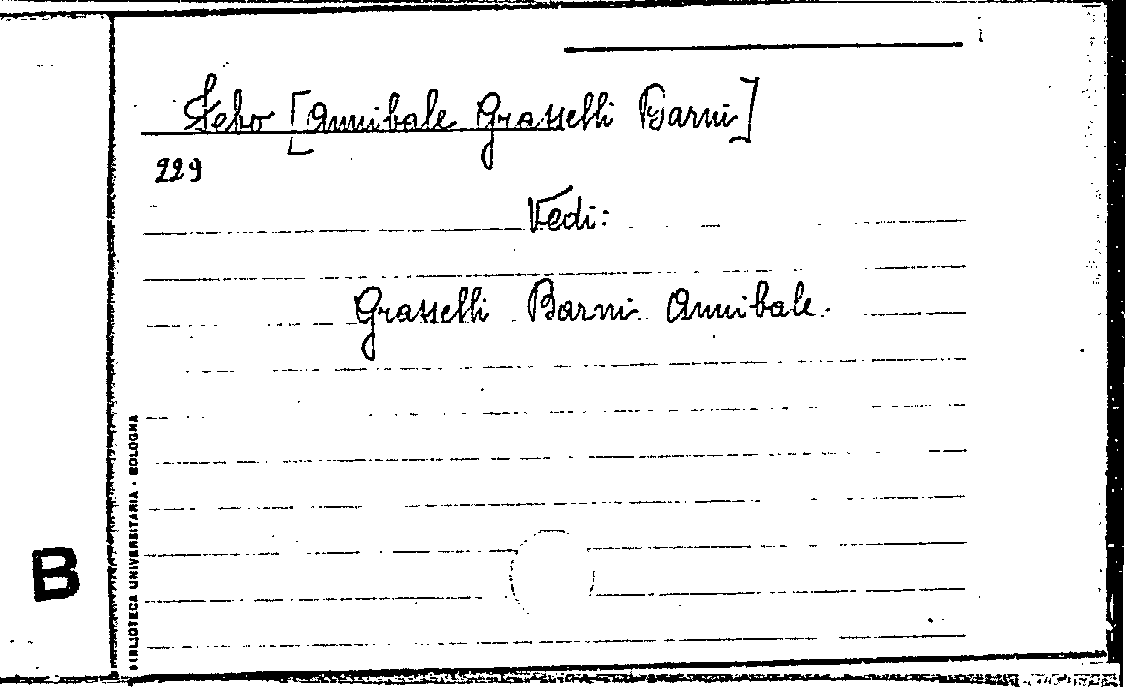 Febo [Annibale Grasselli Barni]
229
Vedi:
Grasselli Barni Annibale.
BIBLIOTECA UNIVERSITARIA - BOLOGNA
B